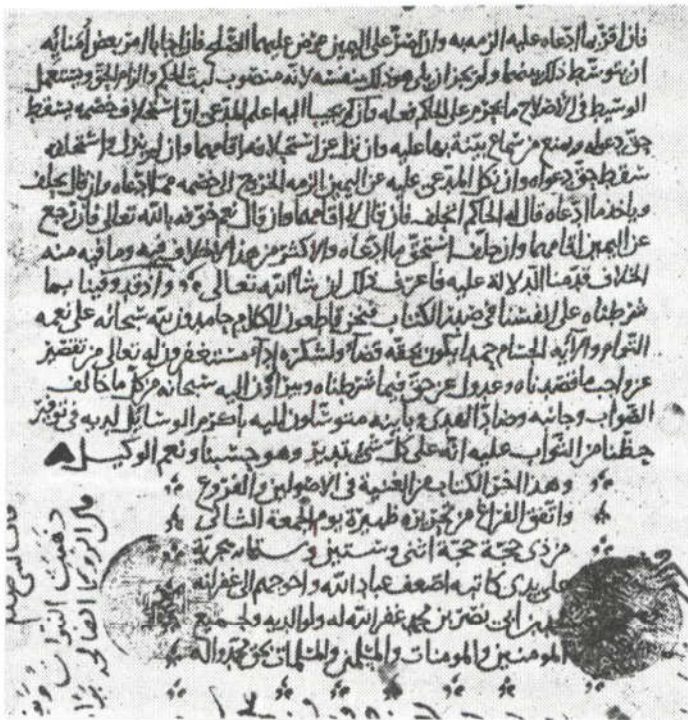 فان اقر بما ادعاه عليه الزمه به وان اصر على اليمين عرض عليهما الصلح فان اجابا امر بعض امنائه
ان يتوسط ذلك بينهما ولم يجز ان يلي هو ذلك بنفسه لانه منصوب لبت الحكم والزام الحق ويستعمل
الوسيط في الاصلاح ما يحرم على الحاكم فعله وان لم يجيبا اليه اعلم المدعي ان استحلاف خصمه يسقط
حق دعواه ويمنع من سماع بينة بها عليه وان نزل عن استحلافه اقامهما وان لم ينزل واستحلفه
سقط حق دعواه وان نكل المدعى عليه عن اليمين الزمه الخروج الى خصمه مما ادعاه وان قال يحلف
وياخذ ما ادعاه قال له الحاكم اتحلف فان قال لا اقامهما وان قال نعم خوفه بالله تعالى فان رجع
عن اليمين اقامهما وان حلف استحق ما ادعاه والاكثر من هذا لا خلاف فيه وما فيه منه
الخلاف قدمنا الدلالة عليه فاعرف ذلك ان شاء الله تعالى واذ قد وفينا بما
شرطناه على انفسنا في صدر الكتاب فنحن قاطعون للكلام حامدون لله سبحانه على نعمه
التوام والآيه الجسام حمدا يكون لحقه قضاء ولشكره اداء مستغفرون له تعالى من تقصير
عن واجب ما قصدناه وعدول عن حق فيما شرطناه ومبرؤن اليه سبحانه من كل ما خالف
الصواب وجانبه وضاد الهدى وباينه متوسلون اليه باكرم الوسائل لديه في توفير
حظنا من الثواب عليه انه على كل شيء قدير وهو حسبنا ونعم الوكيل
وهذا اخر الكتاب من الغنية في الاصولين والفروع
واتفق الفراغ من تحريره ظهيرة يوم الجمعة الثاني
من ذي حجة حجة اثنى وستين وستمائة هجرية
على يدي كاتبه اضعف عباد الله واحوجهم الى غفرانه
بن ابي نصر بن محمد غفر الله له ولوالديه ولجميع
المومنين والمومنات والمسلمين والمسلمات بحق محمد واله